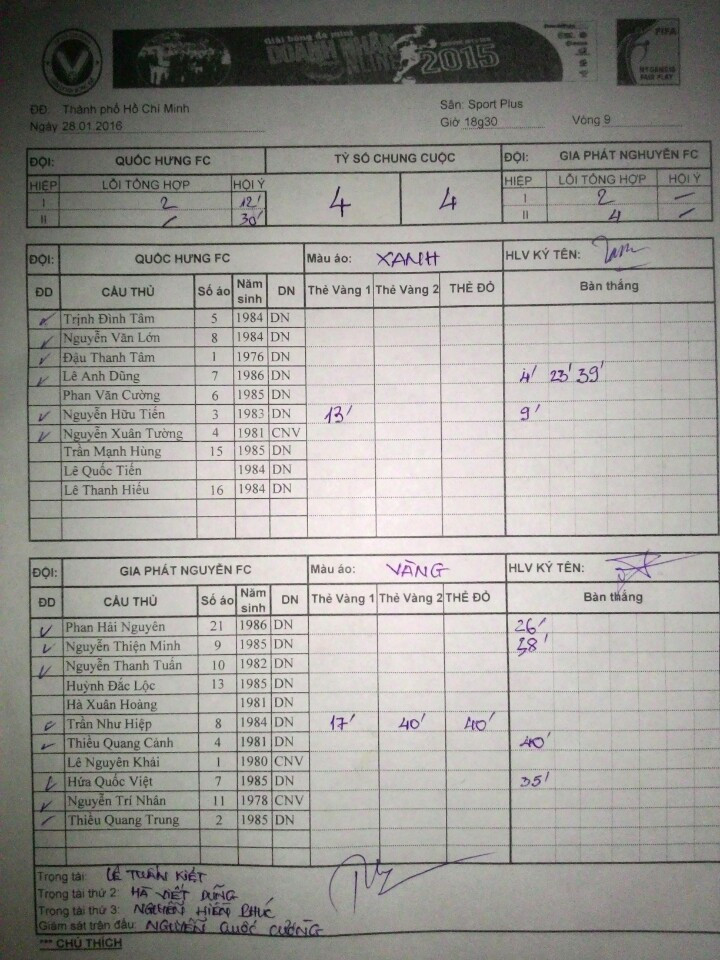 Giải bóng đá mini
DOANH NHÂN
2015
FIFA
MY GAME IS
FAIR PLAY
ĐĐ: Thành phố Hồ Chí Minh
Sân: Sport Plus
Ngày 28.01.2016
Giờ 18g30
Vòng 9
ĐỘI: QUỐC HƯNG FC TỶ SỐ CHUNG CUỘC ĐỘI: GIA PHÁT NGHUYÊN FC
HIỆP LỖI TỔNG HỢP HỘI Ý 4 4 HIỆP LỖI TỔNG HỢP HỘI Ý
I 2 12' I 2 —
II 30' II 4 —
ĐỘI: QUỐC HƯNG FC Màu áo: XANH HLV KÝ TÊN:
ĐD CẦU THỦ Số áo Năm sinh DN Thẻ Vàng 1 Thẻ Vàng 2 THẺ ĐỎ Bàn thắng
✓ Trịnh Đình Tâm 5 1984 DN
✓ Nguyễn Văn Lớn 8 1984 DN
✓ Đậu Thanh Tâm 1 1976 DN
✓ Lê Anh Dũng 7 1986 DN 4' 23' 39'
Phan Văn Cường 6 1985 DN
✓ Nguyễn Hữu Tiến 3 1983 DN 13' 9'
✓ Nguyễn Xuân Tường 4 1981 CNV
Trần Mạnh Hùng 15 1985 DN
Lê Quốc Tiến 1984 DN
Lê Thanh Hiếu 16 1984 DN
ĐỘI: GIA PHÁT NGUYÊN FC Màu áo: VÀNG HLV KÝ TÊN:
ĐD CẦU THỦ Số áo Năm sinh DN Thẻ Vàng 1 Thẻ Vàng 2 THẺ ĐỎ Bàn thắng
✓ Phan Hải Nguyên 21 1986 DN 26'
✓ Nguyễn Thiện Minh 9 1985 DN 38'
✓ Nguyễn Thanh Tuấn 10 1982 DN
Huỳnh Đắc Lộc 13 1985 DN
Hà Xuân Hoàng 1981 DN
✓ Trần Như Hiệp 8 1984 DN 17' 40' 40'
✓ Thiều Quang Cảnh 4 1981 DN 40'
Lê Nguyên Khải 1 1980 CNV
✓ Hứa Quốc Việt 7 1985 DN 35'
✓ Nguyễn Trí Nhân 11 1978 CNV
✓ Thiều Quang Trung 2 1985 DN
Trọng tài: LÊ TUẤN KIỆT
Trọng tài thứ 2: HÀ VIẾT DŨNG
Trọng tài thứ 3: NGUYỄN HIỀN PHÚC
Giám sát trận đấu: NGUYỄN QUỐC CƯỜNG
*** CHÚ THÍCH